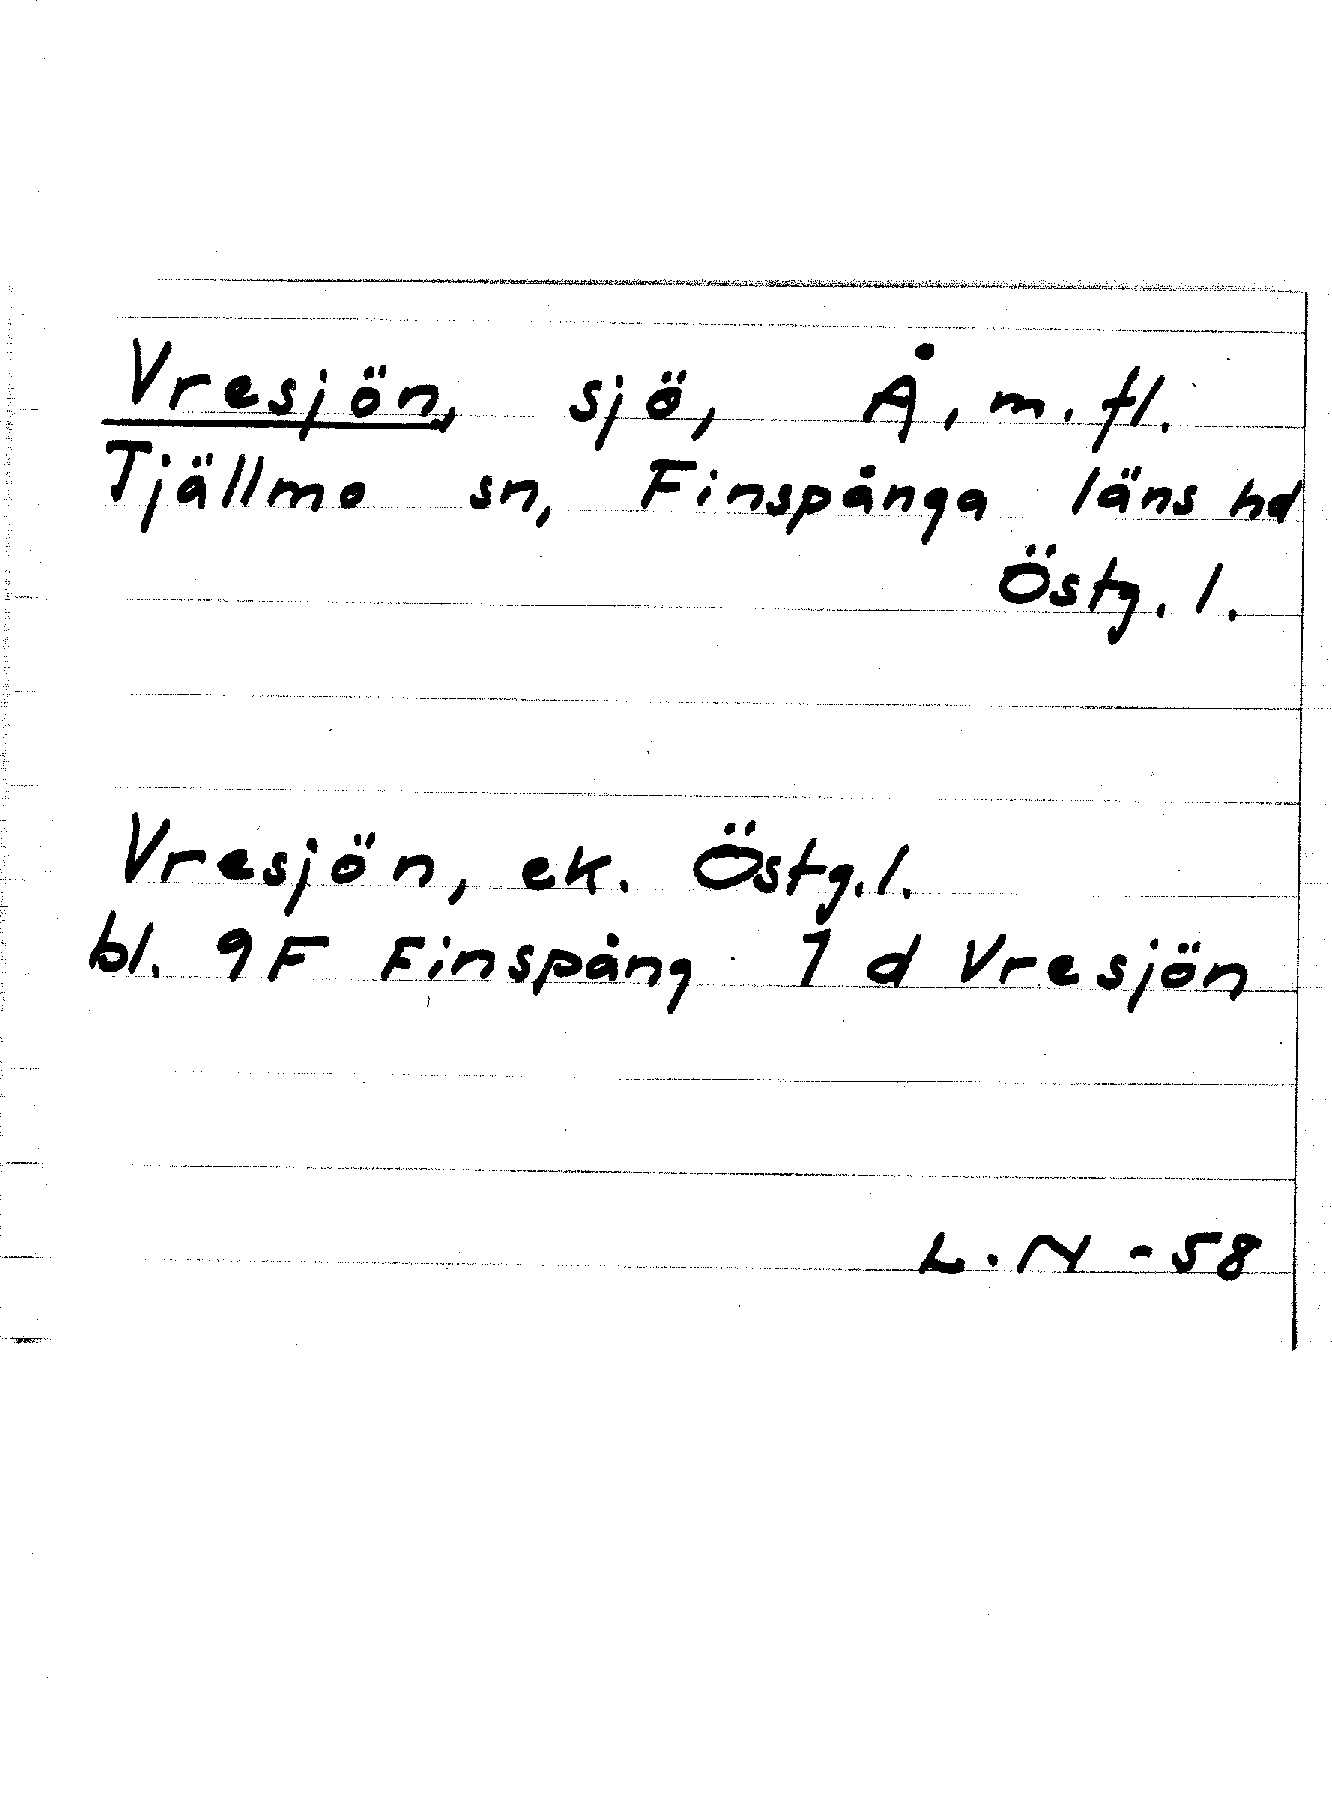 Vresjön, sjö, Å, m. fl.
Tjällmo sn, Finspånga läns hd
Östg. l.
Vresjön, ek. Östg. l.
bl. 9F Finspång 1 d Vresjön
L. N - 58